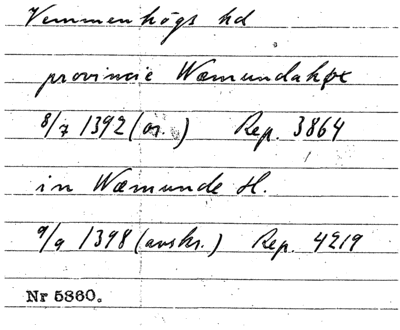 Vemmenhögs hd
provincie Wæmundahøx
8/7 1392 (or.) Rep. 3864
in Wæmunde H.
9/9 1398 (avskr.) Rep. 4219
Nr 5860.